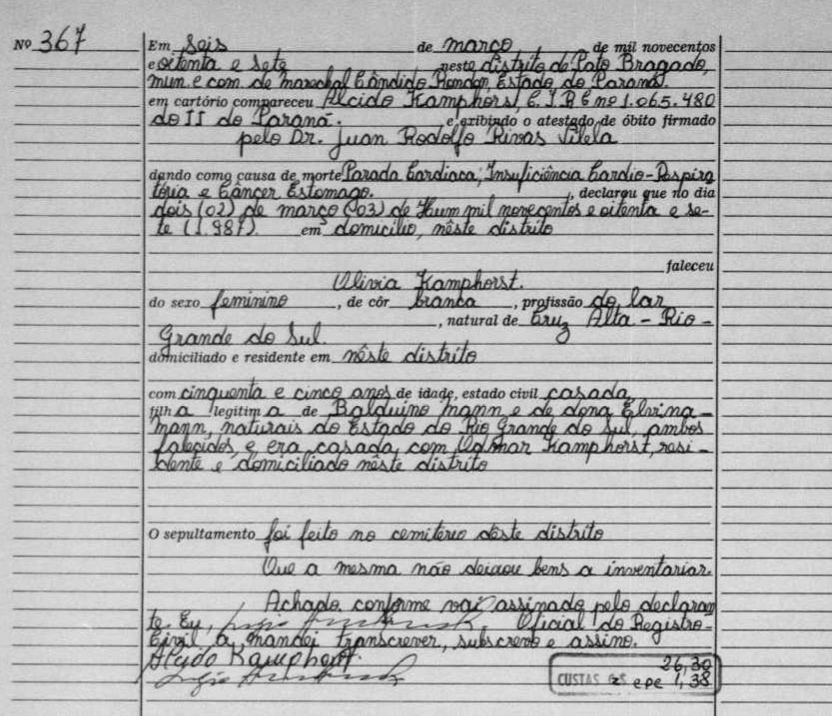 Nº 367
Em Seis de março de mil novecentos
e oitenta e sete neste distrito de Pato Bragado,
mun. e com. de Marechal Cândido Rondon, Estado do Paraná.
em cartório compareceu Alcido Kamphorst, C.I.R.G nº 1.065.480
do II do Paraná. e exibindo o atestado de óbito firmado
pelo Dr. Juan Rodolfo Rivas Vilela
dando como causa de morte Parada Cardiaca, Insuficiência Cardio-Respira
tória e Câncer Estomago. , declarou que no dia
dois (02) de março (03) de Hum mil novecentos e oitenta e se-
te (1.987). em domicilio, nêste distrito
faleceu
Olivia Kamphorst.
do sexo feminino , de côr branca , profissão do lar
, natural de Cruz Alta - Rio -
Grande do Sul.
domiciliado e residente em nêste distrito
com cinquenta e cinco anos de idade, estado civil casada
filha legitima de Balduino Mann e de dona Elvina -
Mann, naturais do Estado do Rio Grande do Sul, ambos
falecidos, e era casada com Kamphorst, resi-
dente e domiciliado nêste distrito
O sepultamento foi feito no cemitério dêste distrito
Que a mesma não deixou bens a inventariar.
Achado conforme vai assinado pelo declaran
te. Eu, Oficial do Registro-
Civil a, mandei transcrever, subscrevo e assino.
Alcido Kamphorst
26,30
CUSTAS epe 1,38